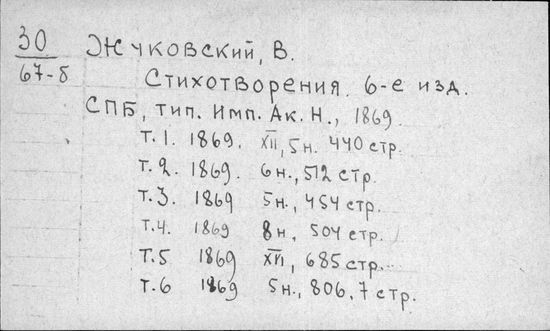 30
67-б
Жуковский, В.
Стихотворения. 6-е изд.
СПБ, тип. Имп. Ак. Н., 1869.
т. 1. 1869. XII, 5 н. 440 стр.
т. 2. 1869. 6 н., 512 стр.
т. 3. 1869 5 н., 454 стр.
т. 4. 1869 8 н, 504 стр.
т. 5 1869 XVI, 685 стр.
т. 6 1869 5 н., 806, 7 стр.